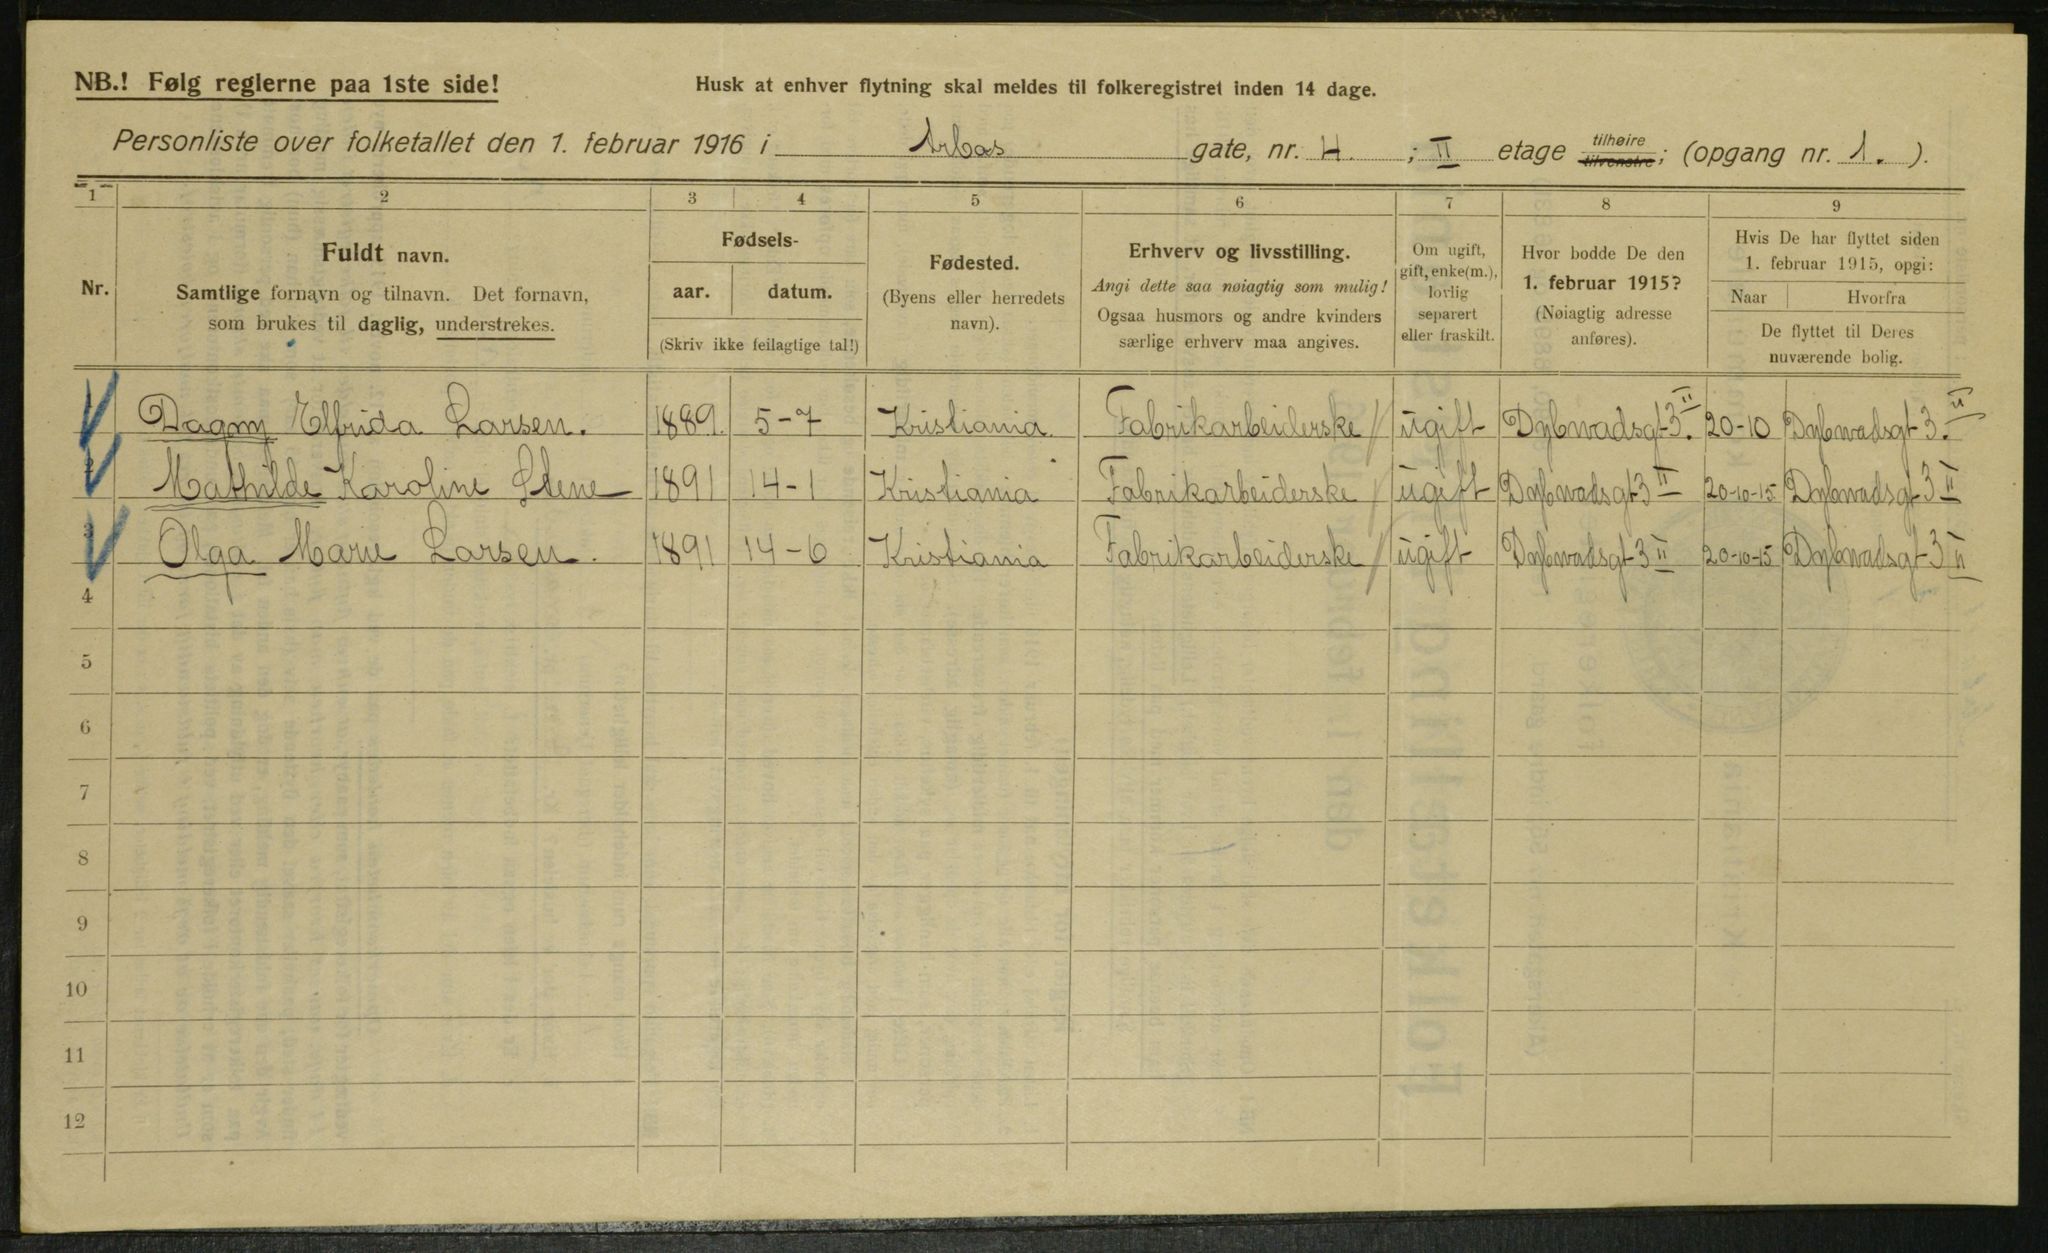 NB.! Følg reglerne paa 1ste side!
Husk at enhver flytning skal meldes til folkeregistret inden 14 dage.
Personliste over folketallet den 1. februar 1916 i Arbos gate, nr. 4. ; II etage tilhøire tilvenstre; (opgang nr. 1. ).
1 2 3 4 5 6 7 8 9
Nr.
Fuldt navn.
Samtlige fornavn og tilnavn. Det fornavn,
som brukes til daglig, understrekes.
Fødsels-
aar. datum.
(Skriv ikke feilagtige tal!)
Fødested.
(Byens eller herredets
navn).
Erhverv og livsstilling.
Angi dette saa nøiagtig som mulig!
Ogsaa husmors og andre kvinders
særlige erhverv maa angives.
Om ugift,
gift, enke(m.),
lovlig
separert
eller fraskilt.
Hvor bodde De den
1. februar 1915?
(Nøiagtig adresse
anføres).
Hvis De har flyttet siden
1. februar 1915, opgi:
Naar Hvorfra
De flyttet til Deres
nuværende bolig.
Dagny Elfrida Larsen. 1889. 5-7 Kristiania. Fabrikarbeiderske ugift Dybwadsgt 3. II 20-10 Dybwadsgt 3. II
2 Mathilde Karoline Stene 1891 14-1 Kristiania Fabrikarbeiderske ugift Dybwadsgt 3 II 20-10-15 Dybwadsgt 3 II
3 Olga Marie Larsen. 1891 14-6 Kristiania Fabrikarbeiderske ugift Dybwadsgt 3 II 20-10-15 Dybwadsgt 3 II
4
5
6
7
8
9
10
11
12